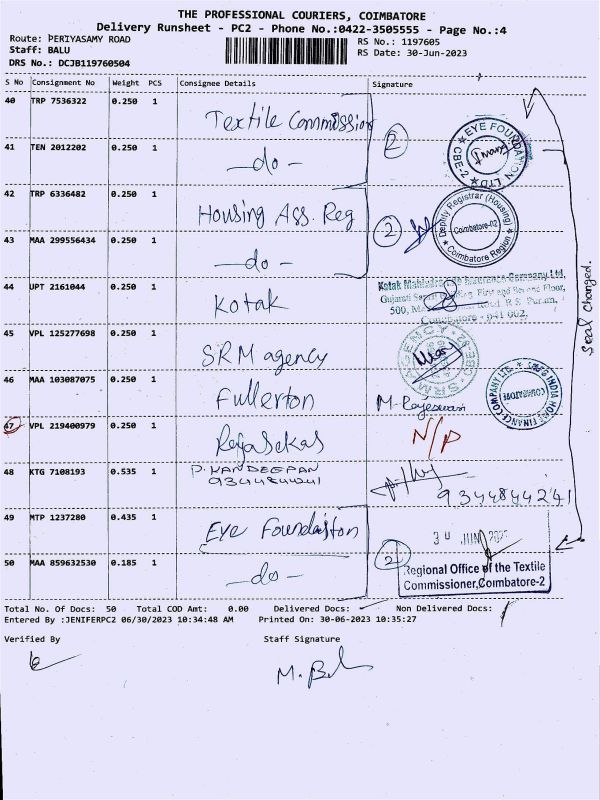 THE PROFESSIONAL COURIERS, COIMBATORE
Delivery Runsheet - PC2 - Phone No.:0422-3505555 - Page No.:4
Route: PERIYASAMY ROAD
RS No.: 1197605
Staff: BALU
RS Date: 30-Jun-2023
DRS No.: DCJB119760504
S No Consignment No Weight PCS Consignee Details Signature
40 TRP 7536322 0.250 1 Textile Commission
41 TEN 2012202 0.250 1 -do- 2
EYE FOUNDATION LTD CBE-2
42 TRP 6336482 0.250 1 Housing Ass. Reg
43 MAA 299556434 0.250 1 -do- 2
Deputy Registrar (Housing)
Coimbatore-02
Coimbatore Region
44 UPT 2161044 0.250 1 Kotak
Kotak Mahindra Life Insurance Company Ltd,
Gujarati First and Second Floor,
500, Road, R.S. Puram,
Coimbatore - 641 002.
Seal Changed.
45 VPL 125277698 0.250 1 SRM agency
SRM AGENCY
46 MAA 103087075 0.250 1 Fullerton M. Rajeswari
INDIA HOME FINANCE COMPANY LTD
COIMBATORE
47 VPL 219400979 0.250 1 Rajasekar N/P
48 KTG 7108193 0.535 1 P. KANDEEPAN
9344844241
9344844241
49 MTP 1237280 0.435 1 Eye Foundaiston
30 JUN 2023
50 MAA 859632530 0.185 1 -do- 2
Regional Office of the Textile
Commissioner, Coimbatore-2
Total No. Of Docs: 50 Total COD Amt: 0.00 Delivered Docs: Non Delivered Docs:
Entered By :JENIFERPC2 06/30/2023 10:34:48 AM Printed On: 30-06-2023 10:35:27
Verified By Staff Signature